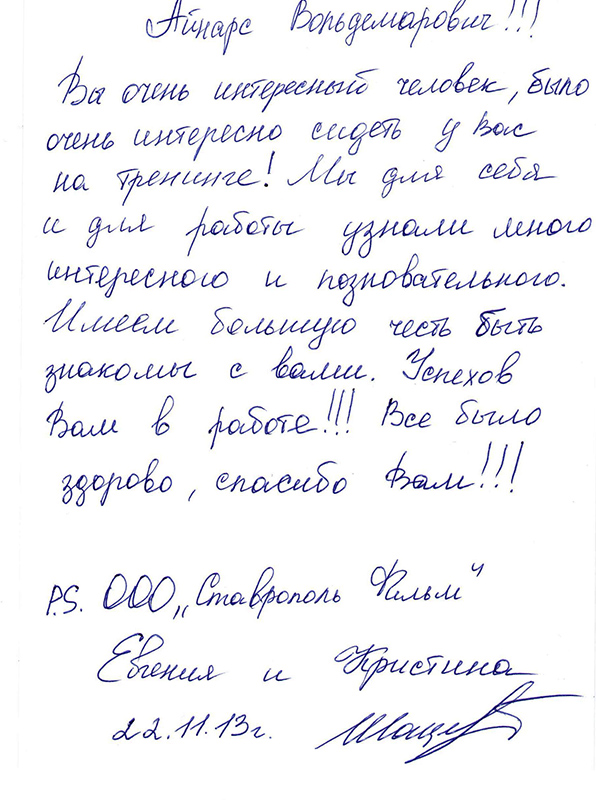 Айнарс Вольдемарович!!!
Вы очень интересный человек, было
очень интересно сидеть у Вас
на тренинге! Мы для себя
и для работы узнали много
интересного и позновательного.
Имеем большую честь быть
знакомы с вами. Успехов
Вам в работе!!! Все было
здорово, спасибо Вам!!!
P.S. ООО „Ставрополь Фильм"
Евгения и Кристина
22.11.13г.